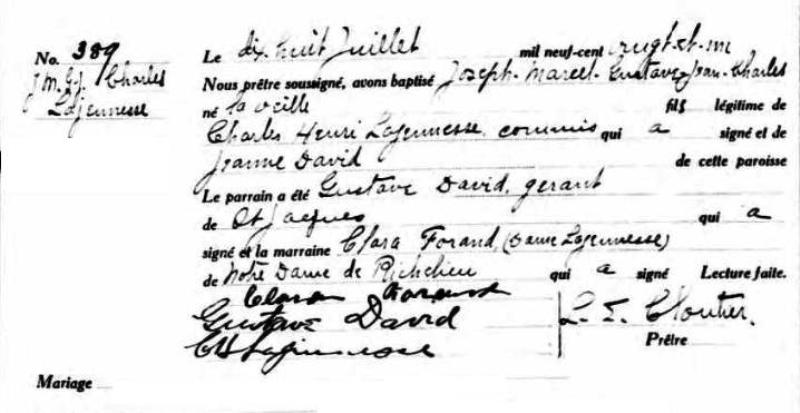 No. 389
J. M. G. J. Charles
Lajeunesse
Le dix huit Juillet mil neuf-cent vingt-et-un
Nous prêtre soussigné, avons baptisé Joseph-Marcel-Gustave-Jean-Charles
né la veille fils légitime de
Charles Henri Lajeunesse, commis qui a signé et de
Jeanne David de cette paroisse
Le parrain a été Gustave David, gerant
de St Jacques qui a
signé et la marraine Clara Forand, (Dame Lajeunesse)
de Notre Dame de Richelieu qui a signé Lecture faite.
Clara Forand
Gustave David
CH Lajeunesse
L. E. Cloutier.
Prêtre
Mariage